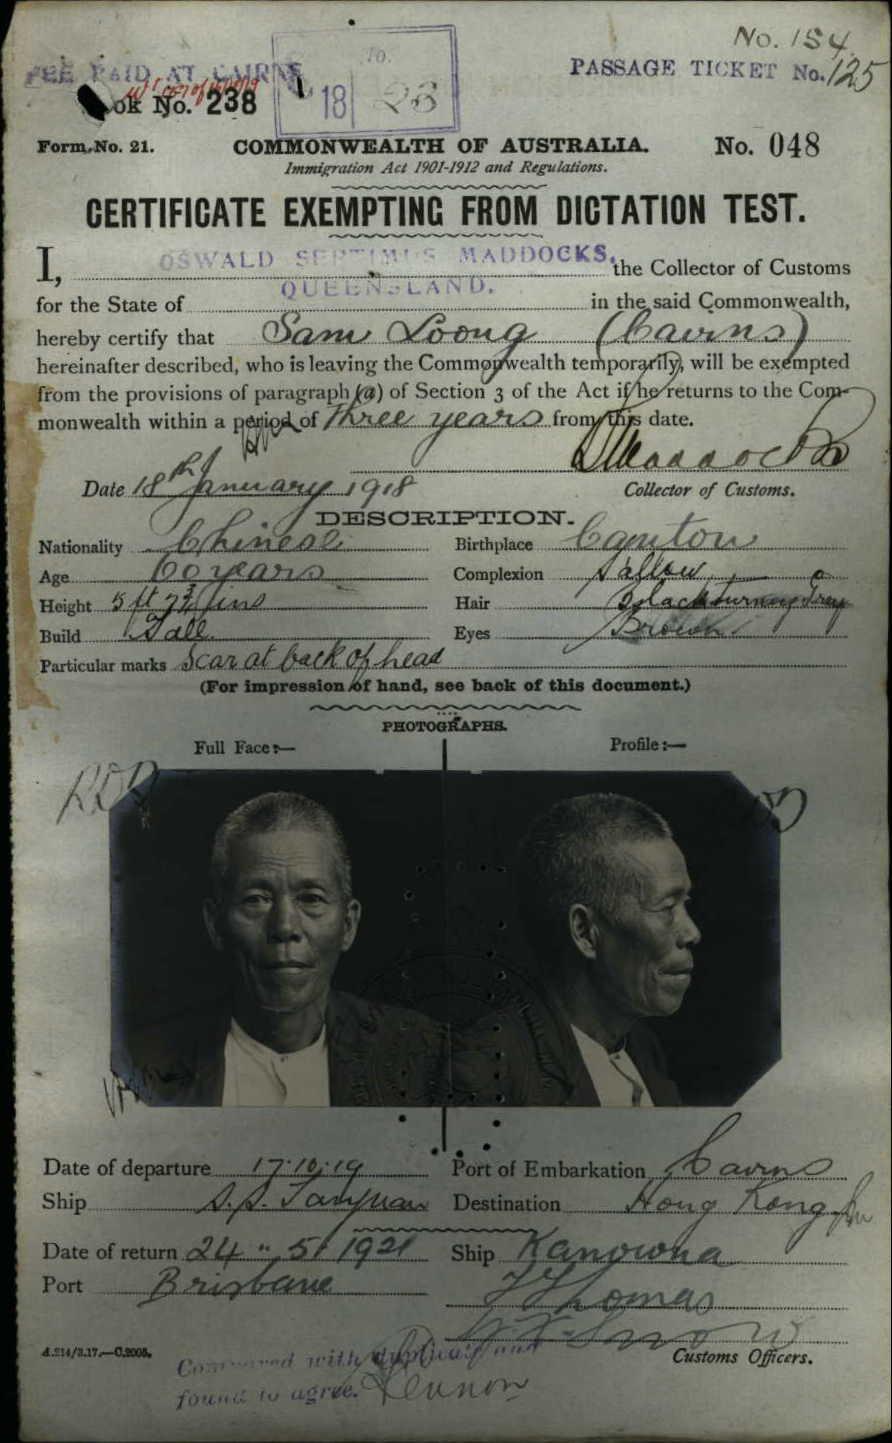 No. 154
FEE PAID AT CAIRNS
PASSAGE TICKET No. 125
ok No. 238
18 | 26
Form No. 21.
COMMONWEALTH OF AUSTRALIA.
No. 048
Immigration Act 1901-1912 and Regulations.
CERTIFICATE EXEMPTING FROM DICTATION TEST.
I, OSWALD SEPTIMUS MADDOCKS, the Collector of Customs
for the State of QUEENSLAND. in the said Commonwealth,
hereby certify that Sam Loong (Cairns)
hereinafter described, who is leaving the Commonwealth temporarily, will be exempted
from the provisions of paragraph (a) of Section 3 of the Act if he returns to the Com-
monwealth within a period of three years from this date.
Maddocks
Date 18th January 1918
Collector of Customs.
DESCRIPTION.
Nationality Chinese Birthplace Canton
Age 60 years Complexion Sallow
Height 5 ft 7¾ ins Hair Black turning Grey
Build Tall Eyes Brown
Particular marks Scar at back of head
(For impression of hand, see back of this document.)
PHOTOGRAPHS.
Full Face:— Profile:—
Date of departure 17.10.19 Port of Embarkation Cairns
Ship S.S. Taiyuan Destination Hong Kong
Date of return 24 " 5 1921 Ship Kanowna
Port Brisbane
Thomas
Snow
A.214/3.17.—C.2005.
Customs Officers.
Compared with duplicate and
found to agree. Lennon